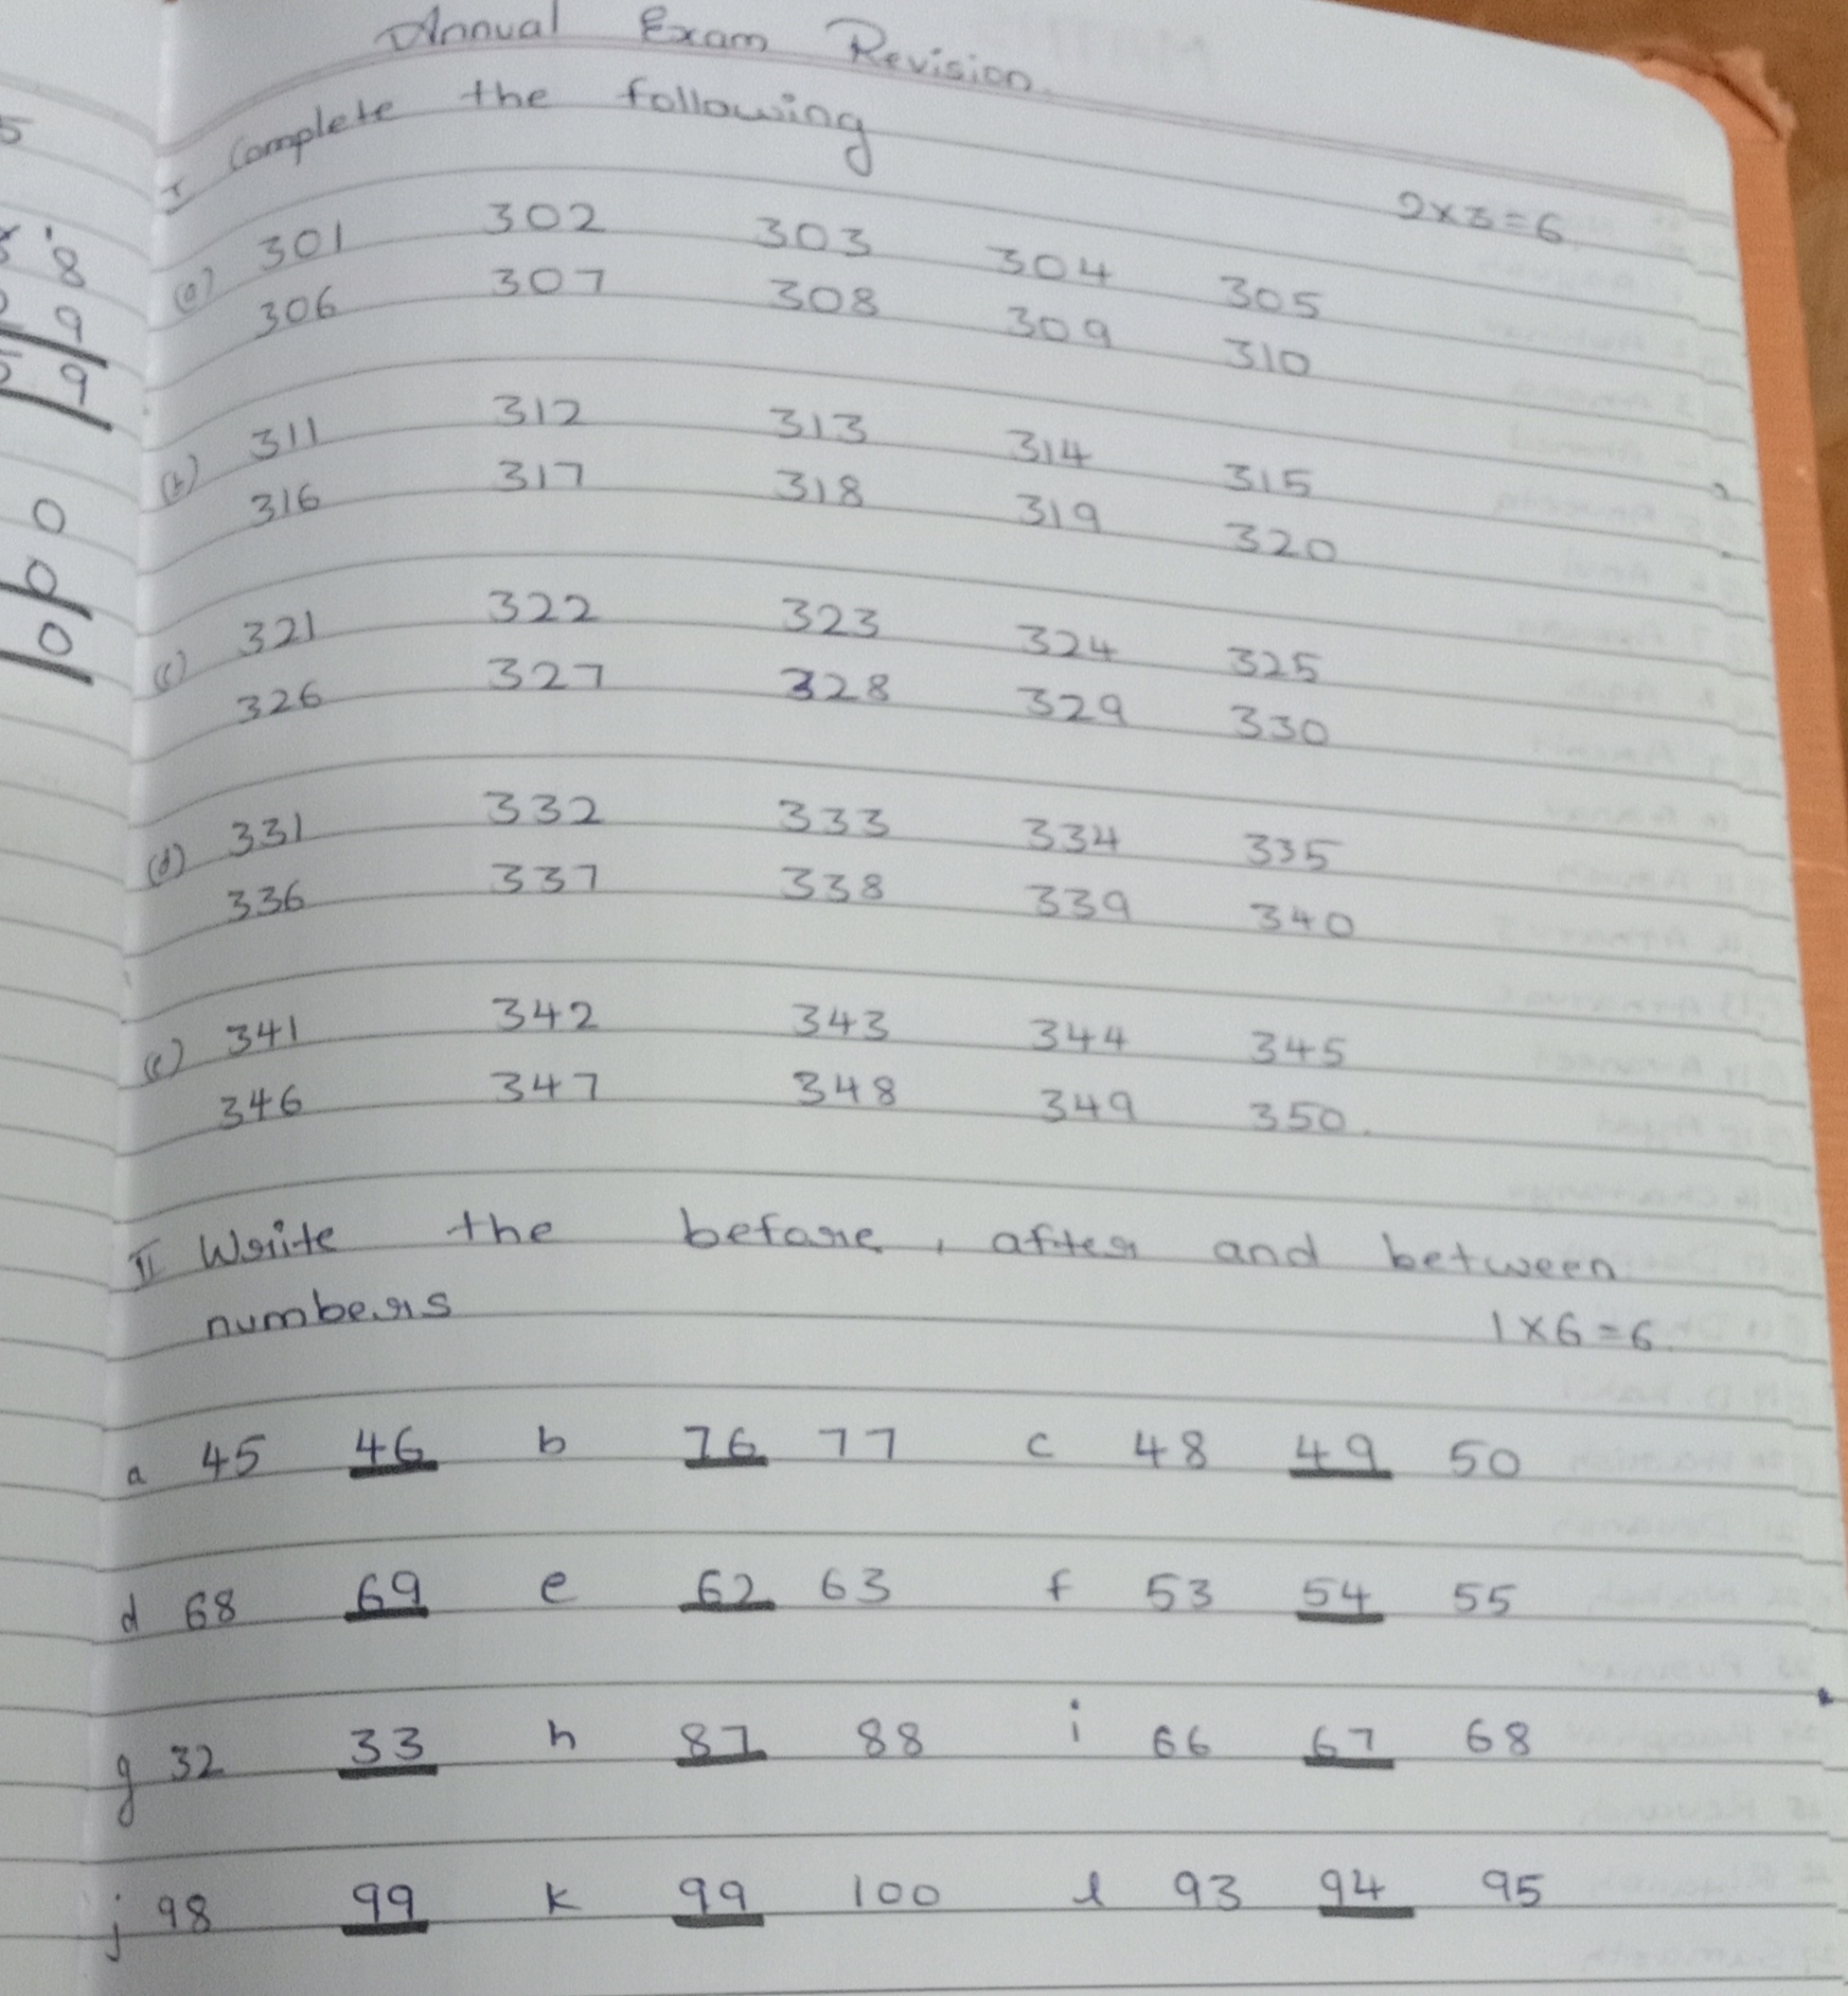 Annual Exam Revision.
I Complete the following
2x3=6
(a) 301 302 303 304 305
306 307 308 309 310
(b) 311 312 313 314 315
316 317 318 319 320
(c) 321 322 323 324 325
326 327 328 329 330
(d) 331 332 333 334 335
336 337 338 339 340
(e) 341 342 343 344 345
346 347 348 349 350.
II Write the before, after and between
numbers
1x6=6.
a 45 46 b 76 77 c 48 49 50
d 68 69 e 62 63 f 53 54 55
g 32 33 h 87 88 i 66 67 68
j 98 99 k 99 100 l 93 94 95
5
8
9
9
0
0
0